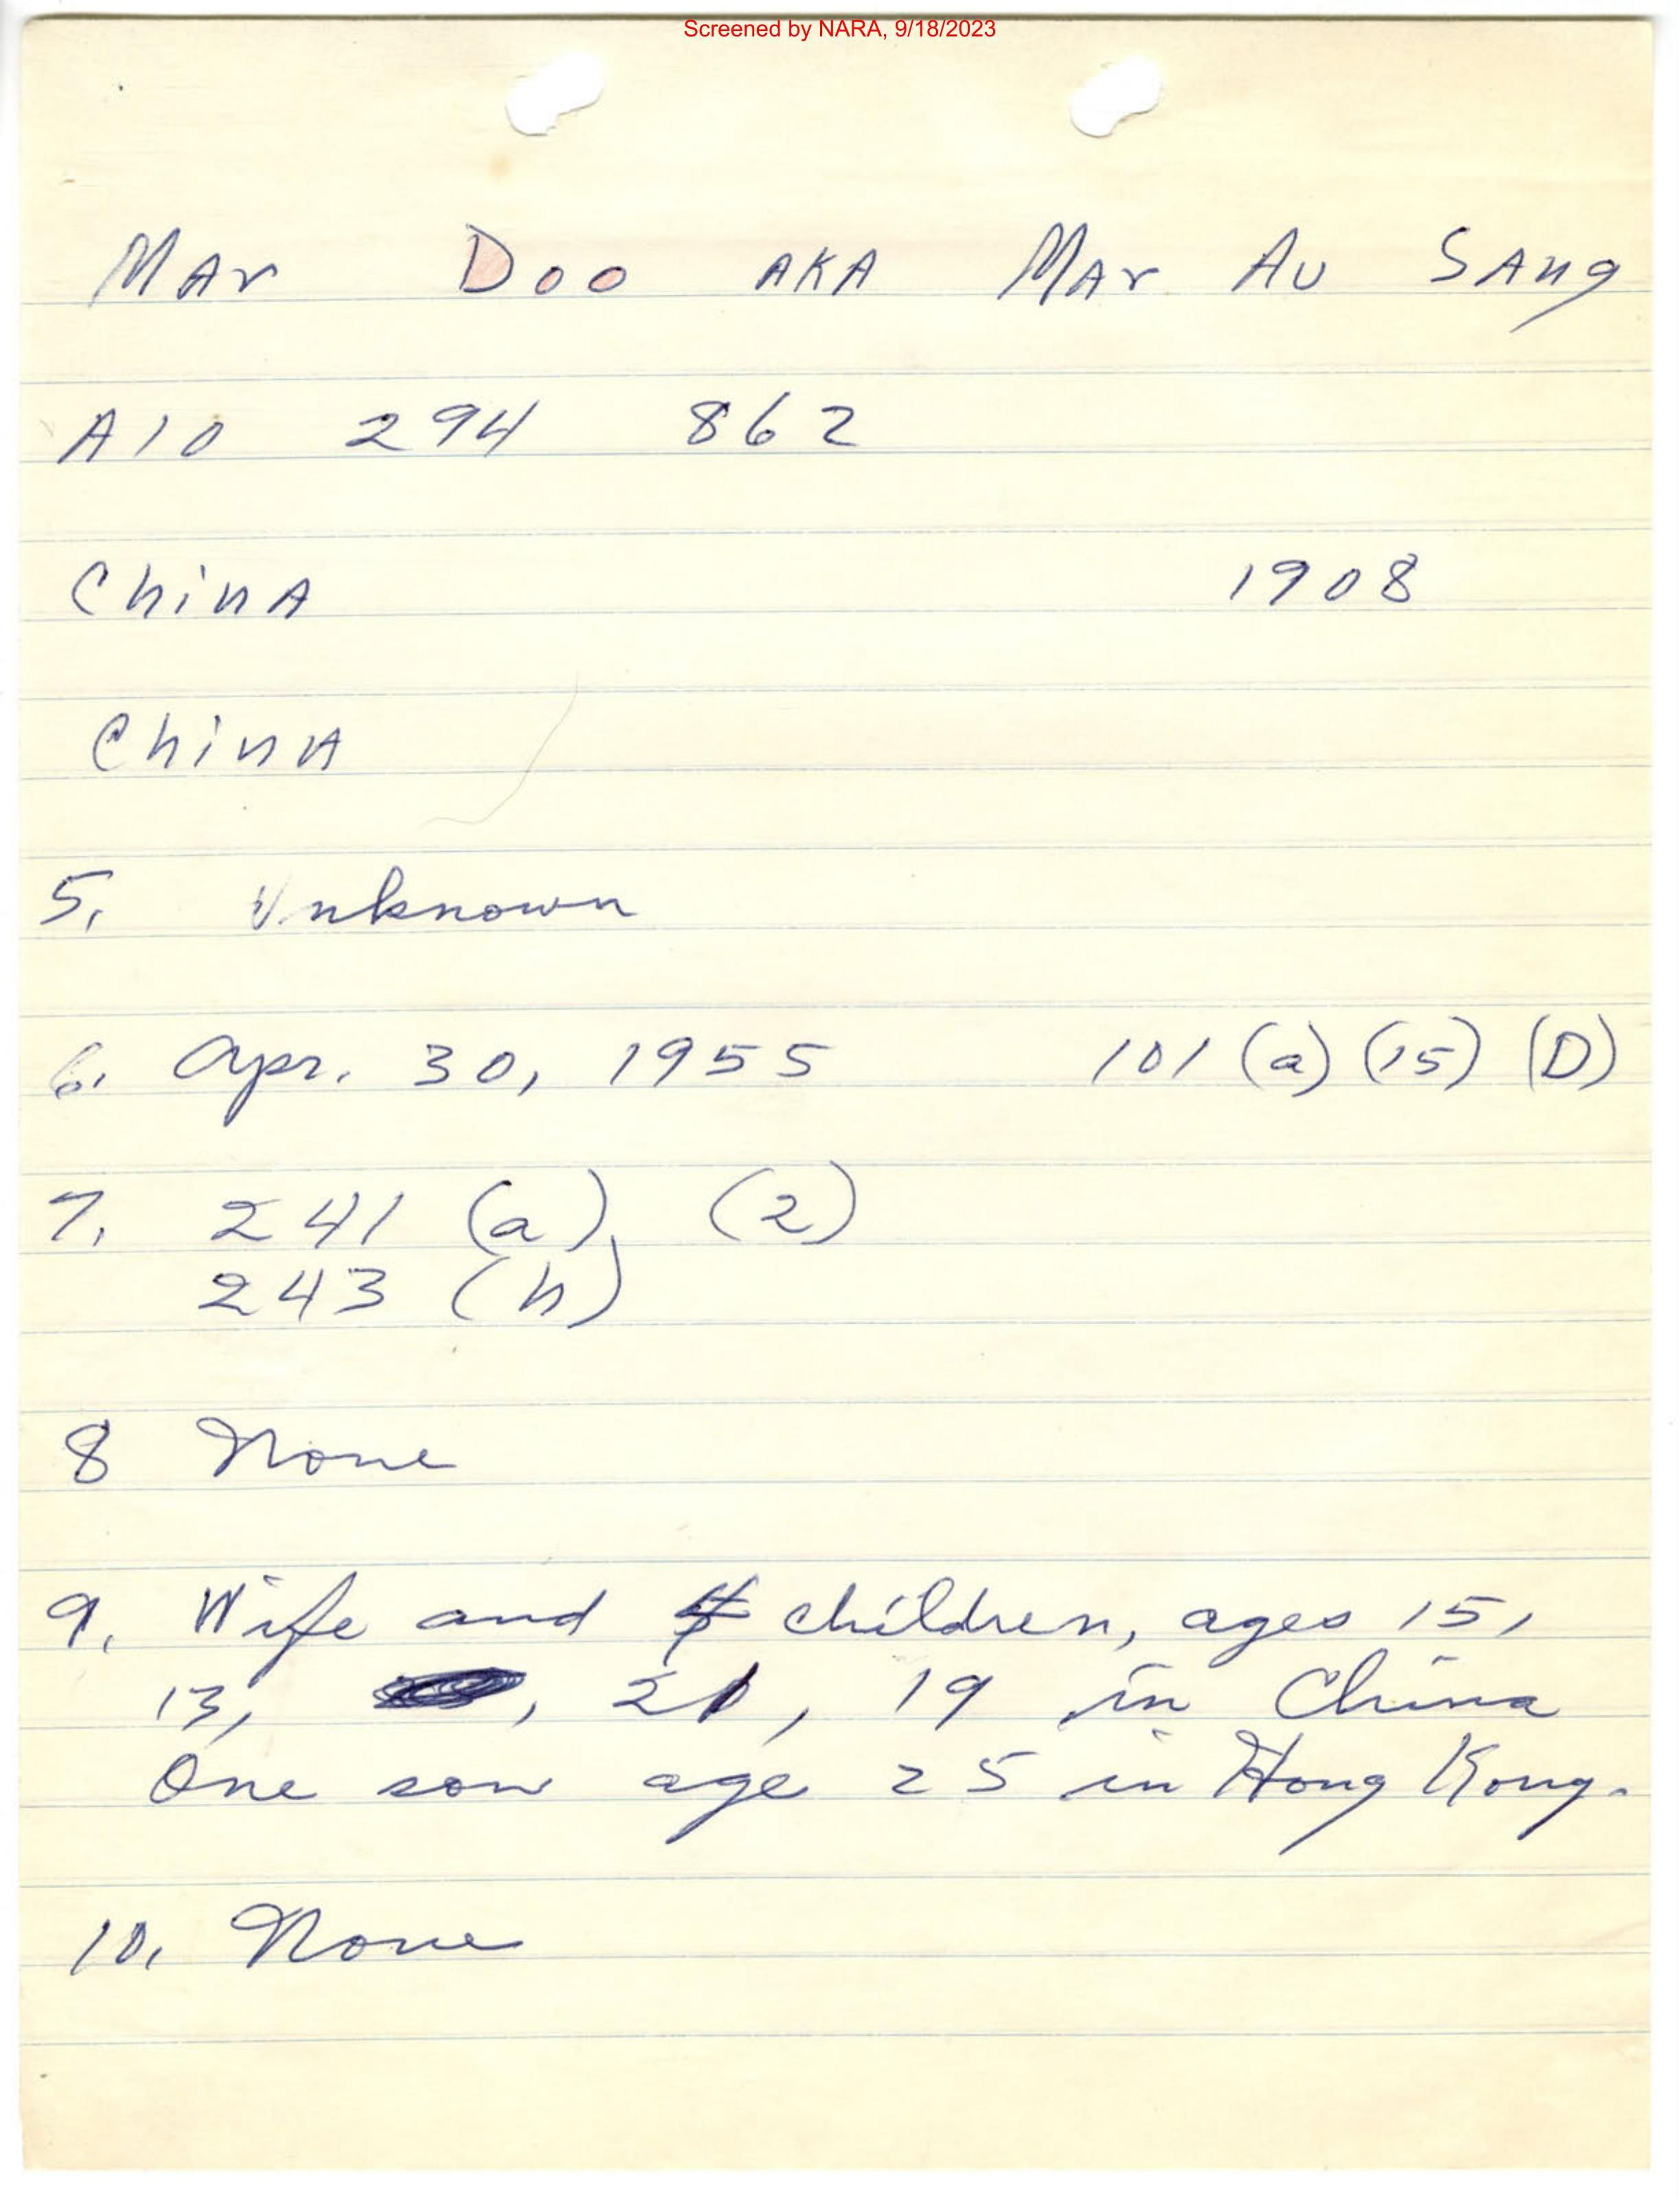 Screened by NARA, 9/18/2023
MAr Doo AKA MAr Au SAng
A10 294 862
ChinA 1908
ChinA
5. Unknown
6. Apr. 30, 1955 101 (a) (15) (D)
7. 241 (a) (2)
243 (h)
8 None
9. Wife and children, ages 15,
13, , 21, 19 in China
One son age 25 in Hong Kong.
10. None